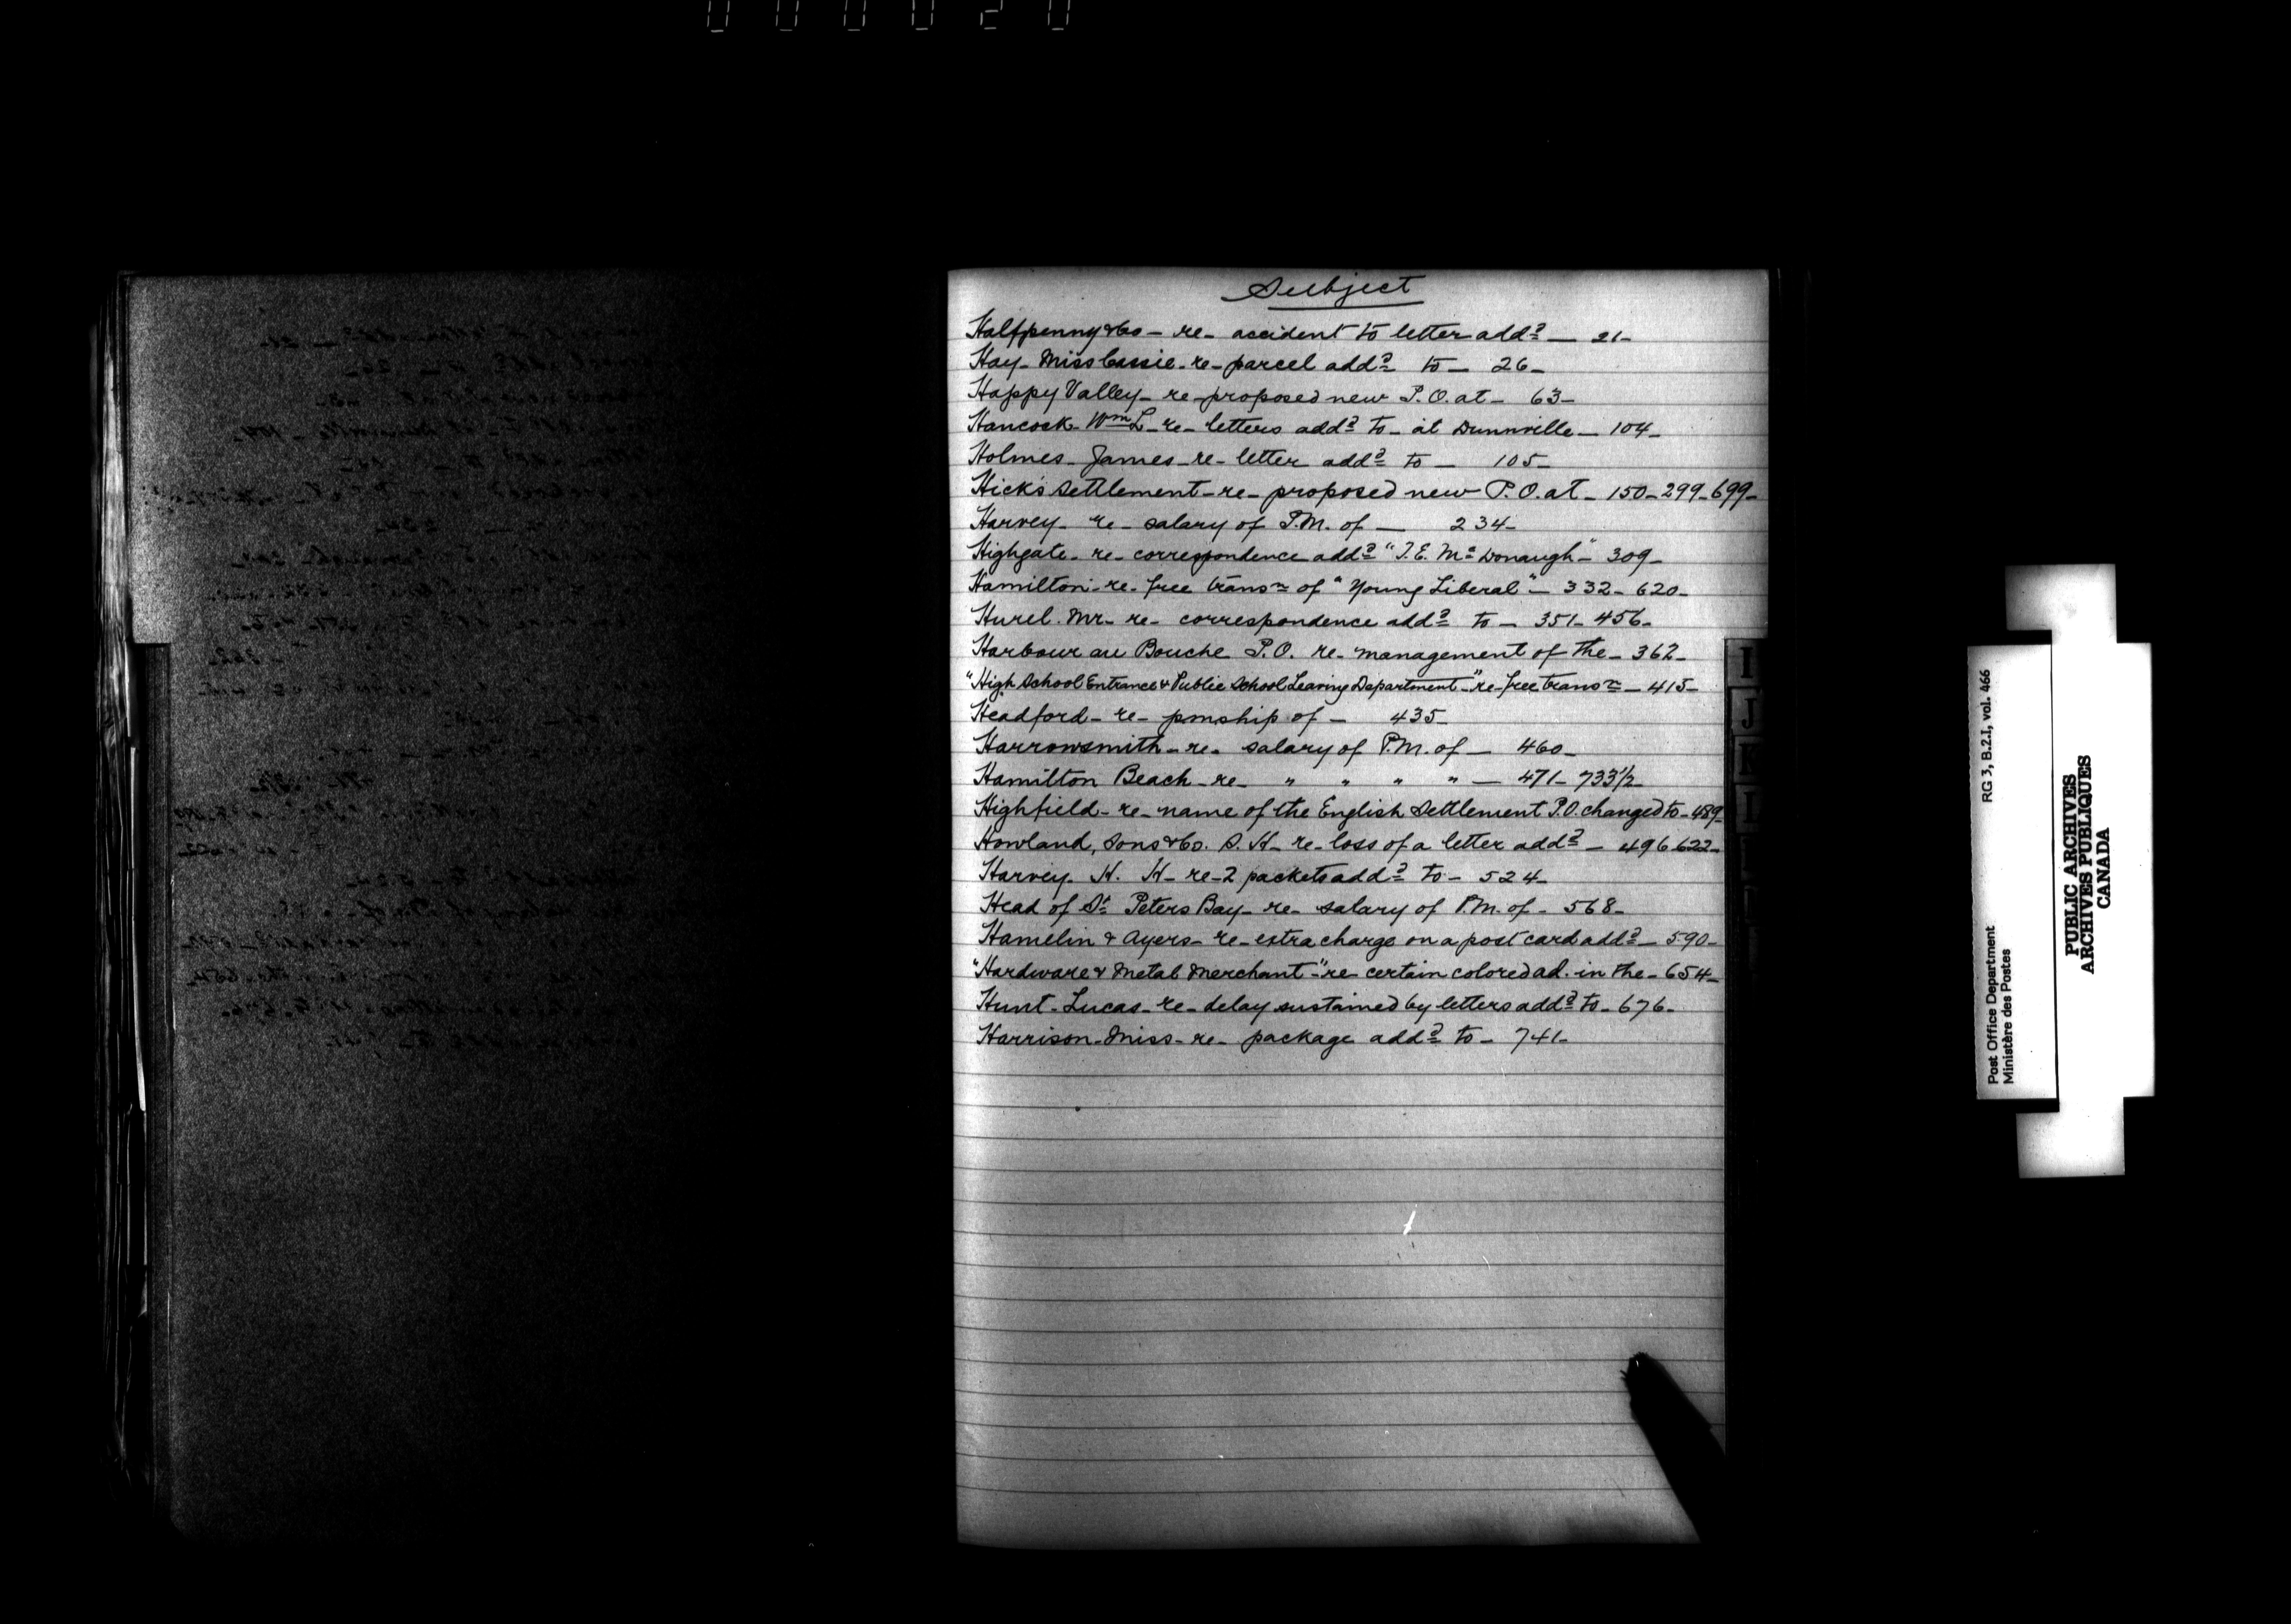 000020
Subject
Halfpenny & Co - re - accident to letter addd - 21 -
Hay - Miss Cassie - re - parcel addd to - 26 -
Happy Valley - re - proposed new P.O. at - 63 -
Hancock - Wm L - re - letters addd to - at Dunnville - 104 -
Holmes - James - re - letter addd to - 105 -
Hick's Settlement - re - proposed new P.O. at - 150 - 299 - 699 -
Harvey - re - salary of P.M. of - 234 -
Highgate - re - correspondence addd "T.E. Mc Donaugh" - 309 -
Hamilton - re - free transn of "Young Liberal" - 332 - 620 -
Hurel - Mr - re - correspondence addd to - 351 - 456 -
Harbour au Bouche P.O. re - management of the - 362 -
"High School Entrance & Public School Leaving Department -" re - free transn - 415 -
Headford - re - pmship of - 435 -
Harrowsmith - re - salary of P.M. of - 460 -
Hamilton Beach - re - " " " " - 471 - 733 1/2 -
Highfield - re - name of the English Settlement P.O. changed to - 489 -
Howland, Sons & Co. S. H - re - loss of a letter addd - 496 622 -
Harvey - H. H - re - 2 packets addd to - 524 -
Head of St Peters Bay - re - salary of P.M. of - 568 -
Hamelin & Ayers - re - extra charge on a post card addd - 590 -
"Hardware & Metal Merchant -" re certain colored ad. in the - 654 -
Hunt - Lucas - re - delay sustained by letters addd to - 676 -
Harrison - Miss - re - package addd to - 741 -
I
J
K
L
Post Office Department RG 3, B.2.I, vol. 466
Ministère des Postes
PUBLIC ARCHIVES
ARCHIVES PUBLIQUES
CANADA